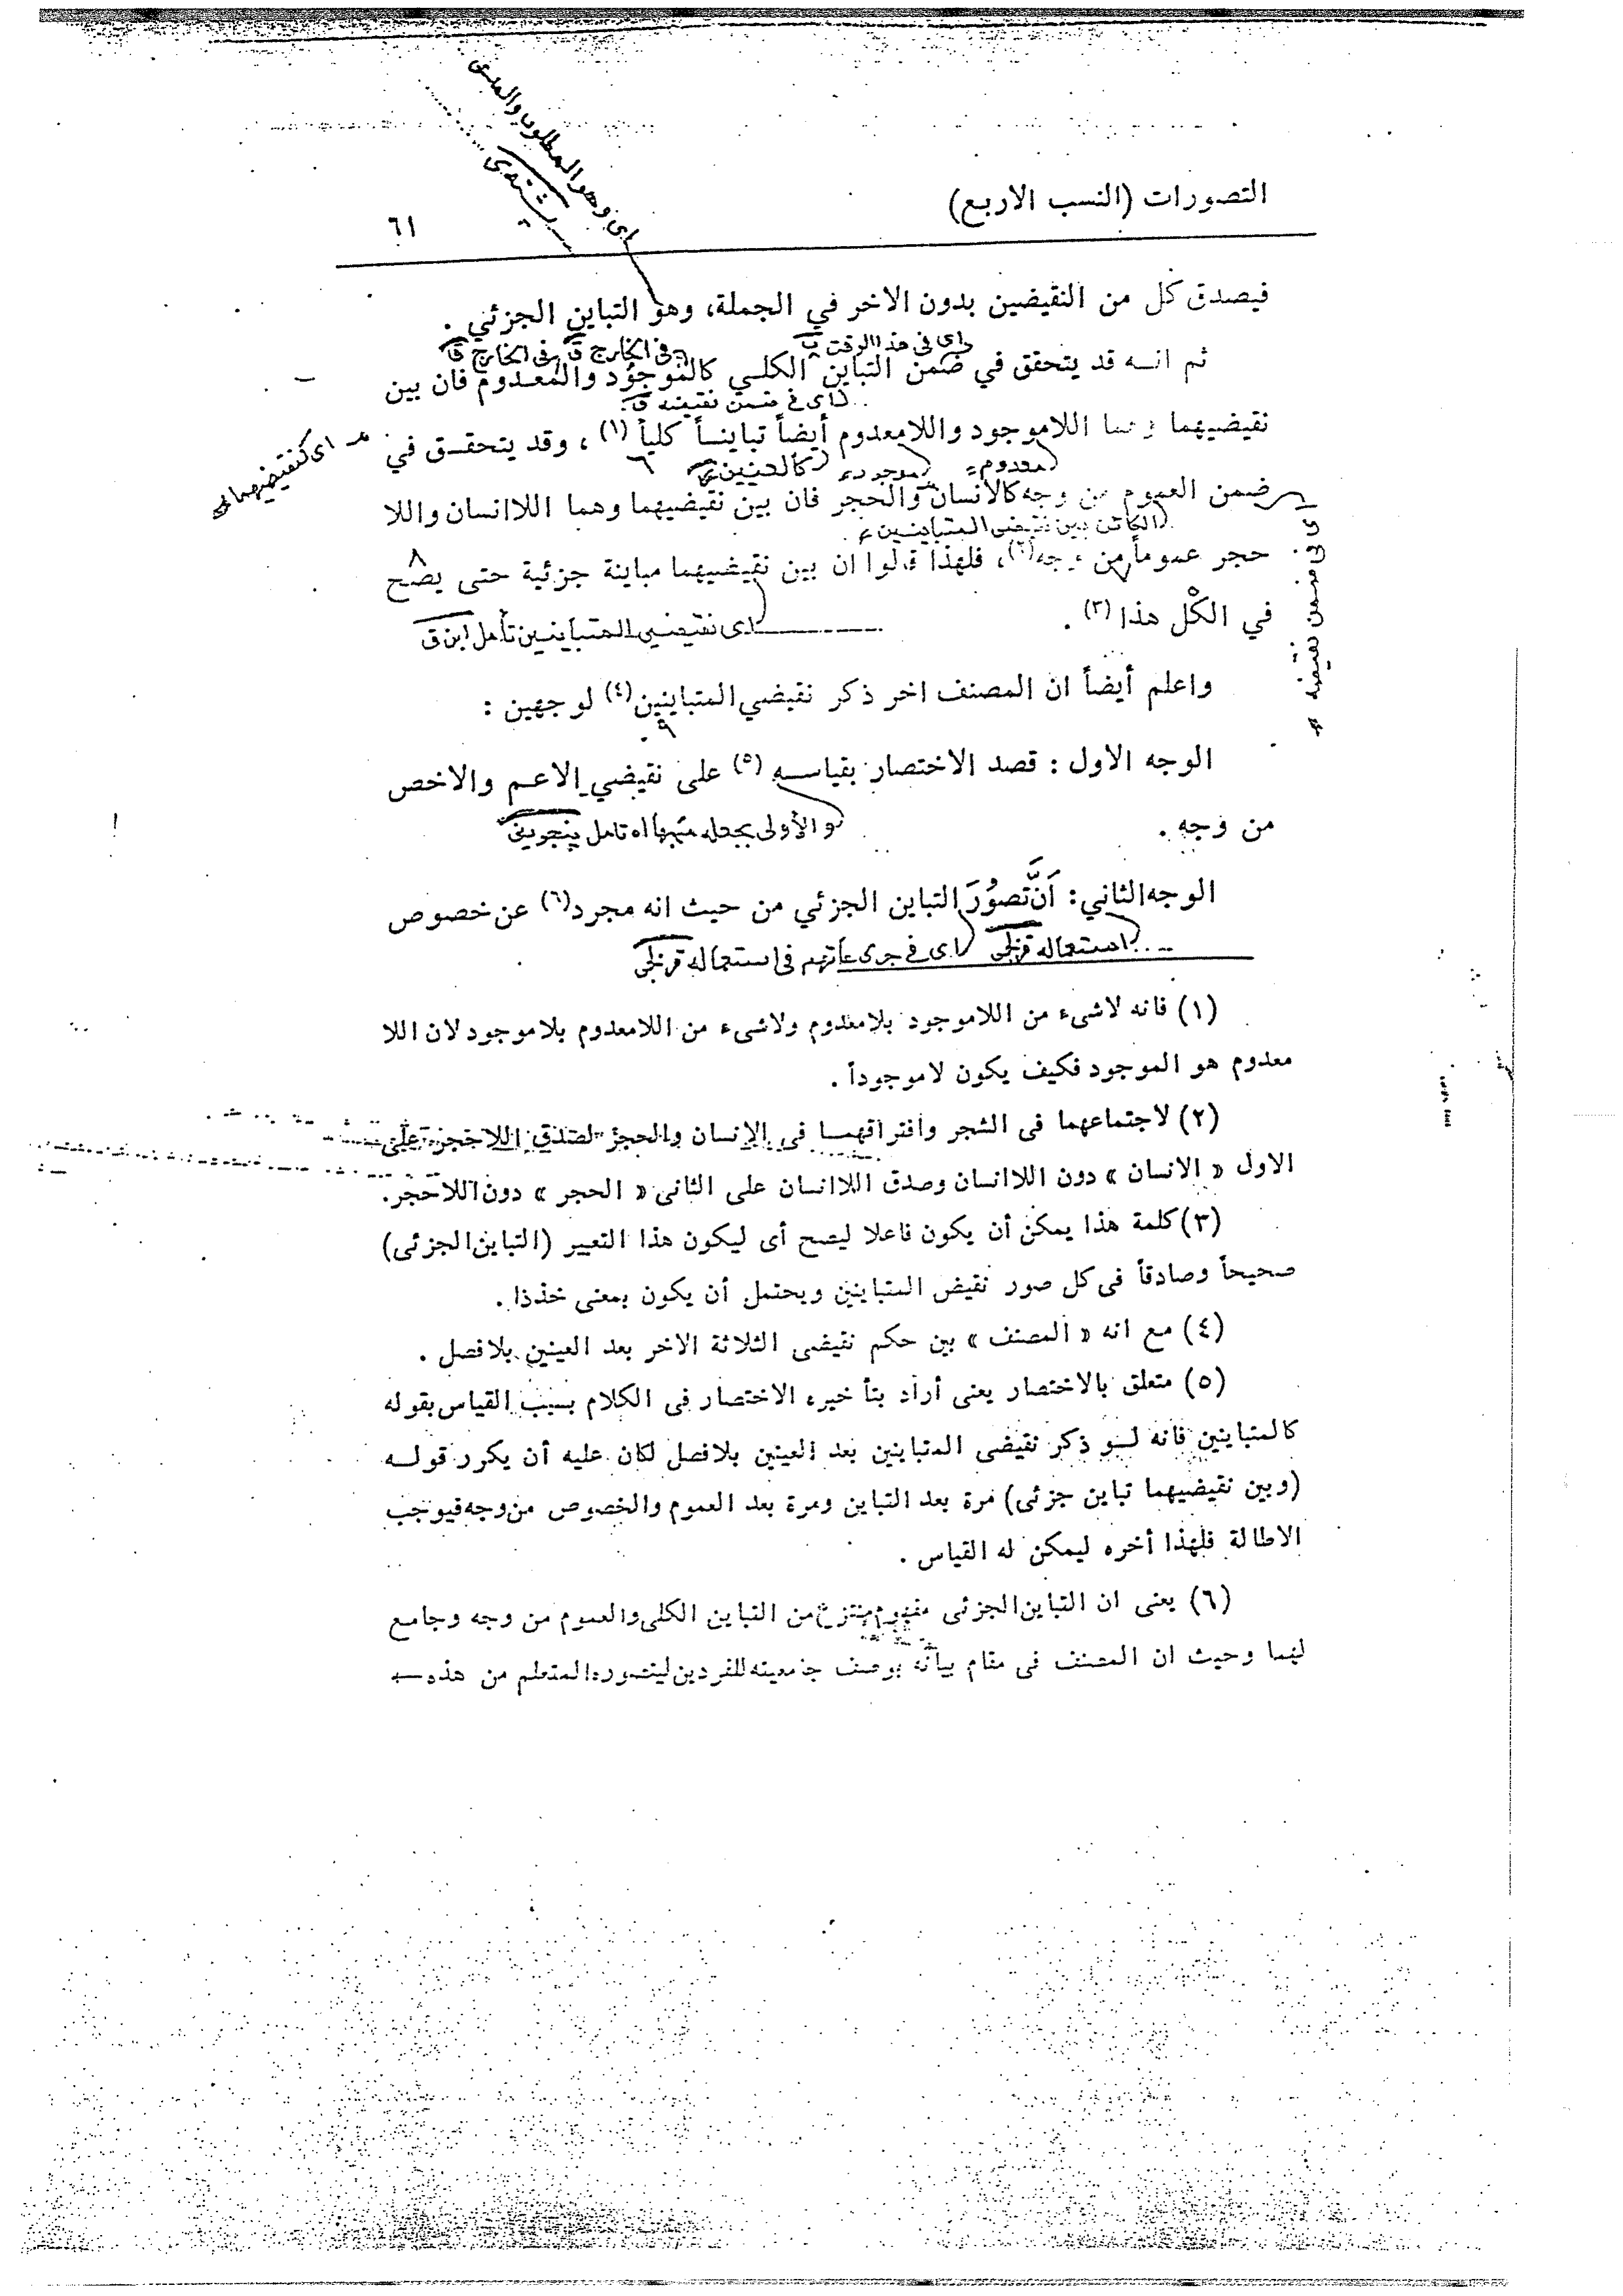 اى وهو المطلوب والمدعى
پشتوى
التصورات (النسب الاربع)
٦١
فيصدق كل من النقيضين بدون الاخر في الجملة، وهو التباين الجزئي .
اى فى هذا الوقت
فى الخارج ق
فى الخارج ق
ثم انـه قد يتحقق في ضمن التباين الكلـي كالموجود والمعـدوم فان بين
اى فى ضمن نقيضه ق
نقيضيهما وهما اللاموجود واللامعدوم أيضاً تباينـاً كلياً (١) ، وقد يتحقـق في
اى كنقيضيهما
معدوم
موجود
كالعينين
ضمن العموم من وجه كالانسان والحجر فان بين نقيضيهما وهما اللاانسان واللا
اى فى ضمن نقيضه
الكائن بين نقيضى المتباينين
حجر عموماً من وجه(٢)، فلهذا قالوا ان بين نقيضيهما مباينة جزئية حتى يصح
في الكل هذا (٣) .
اى نقيضى المتباينين تأمل ابن ق
واعلم أيضاً ان المصنف اخر ذكر نقيضي المتباينين(٤) لوجهين :
الوجه الاول : قصد الاختصار بقياسـه (٥) على نقيضي الاعـم والاخص
من وجه .
والأولى بجعله منهيا اه تامل پنجوينى
الوجه الثاني: اَنَّ تصوُرَ التباين الجزئي من حيث انه مجرد(٦) عن خصوص
استعماله قزلجى
اى فى جرى عاتهم فى استعماله قزلجى
(١) فانه لاشىء من اللاموجود بلامعدوم ولاشىء من اللامعدوم بلاموجود لان اللا
معدوم هو الموجود فكيف يكون لاموجوداً .
(٢) لاجتماعهما فى الشجر وافتراقهمـا فى الانسان والحجر لصدق اللاحجر على
الاول « الانسان » دون اللاانسان وصدق اللاانسان على الثانى « الحجر » دون اللاحجر.
(٣) كلمة هذا يمكن أن يكون فاعلا ليصح أى ليكون هذا التعبير (التباين الجزئى)
صحيحاً وصادقاً فى كل صور نقيض المتباينين ويحتمل أن يكون بمعنى خذذا .
(٤) مع انه « المصنف » بين حكم نقيضى الثلاثة الاخر بعد العينين بلافصل .
(٥) متعلق بالاختصار يعنى أراد بتأخيره الاختصار فى الكلام بسبب القياس بقوله
كالمتباينين فانه لـو ذكر نقيضى المتباينين بعد العينين بلافصل لكان عليه أن يكرر قولـه
(وبين نقيضيهما تباين جزئى) مرة بعد التباين ومرة بعد العموم والخصوص من وجه فيوجب
الاطالة فلهذا أخره ليمكن له القياس .
(٦) يعنى ان التباين الجزئى مفهوم منتزع من التباين الكلى والعموم من وجه وجامع
لهما وحيث ان المصنف فى مقام بيانه بوصف جامعيته للفردين ليتصوره المتعلم من هذه ــ